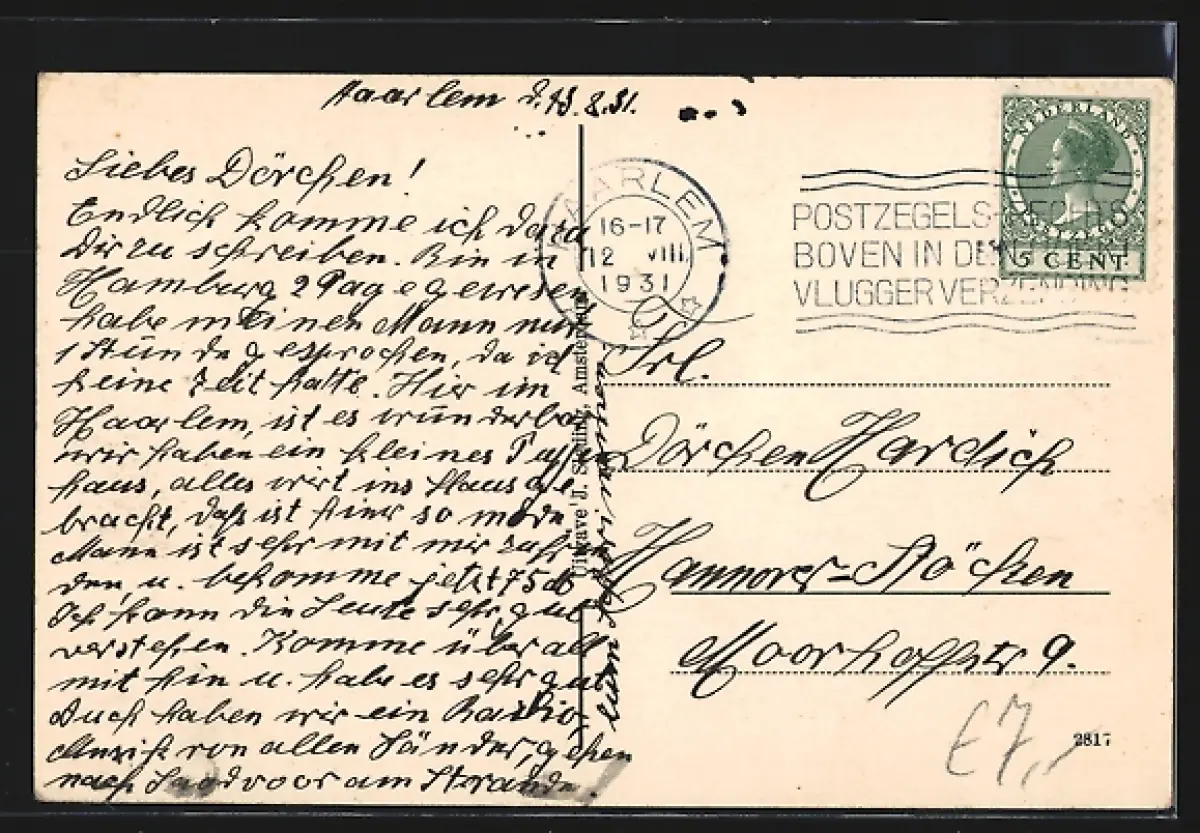 Haarlem d. 13.8.31.
Liebes Dörchen!
Endlich komme ich dazu
Dir zu schreiben. Bin in
Hamburg 2 Tage gewesen
habe meinen Mann nur
1 Stunde gesprochen, da ich
keine Zeit hatte. Hier im
Haarlem, ist es wunderbar
wir haben ein kleines
haus, alles wirt ins Haus ge
bracht, daß ist hier so mode
Mann ist sehr mit mir zufrie
den, u. bekomme jetzt 75
Ich kann die Leute sehr gut
verstehen. Komme über all
mit hin u. habe es sehr gut
Auch haben wir ein Radio
Musik von allen Länder, gehen
nach Sandvoor am Strande.
Uitgave J. Amsterdam
HAARLEM
16-17
12 VIII
1931
POSTZEGELS RECHTS
BOVEN IN DEN HOEK
VLUGGER VERZENDING
NEDERLAND
5 CENT
Frl.
Dörchen Hardich
Hannover-Stöcken
Moorhoffstr 9.
€7,-
2817